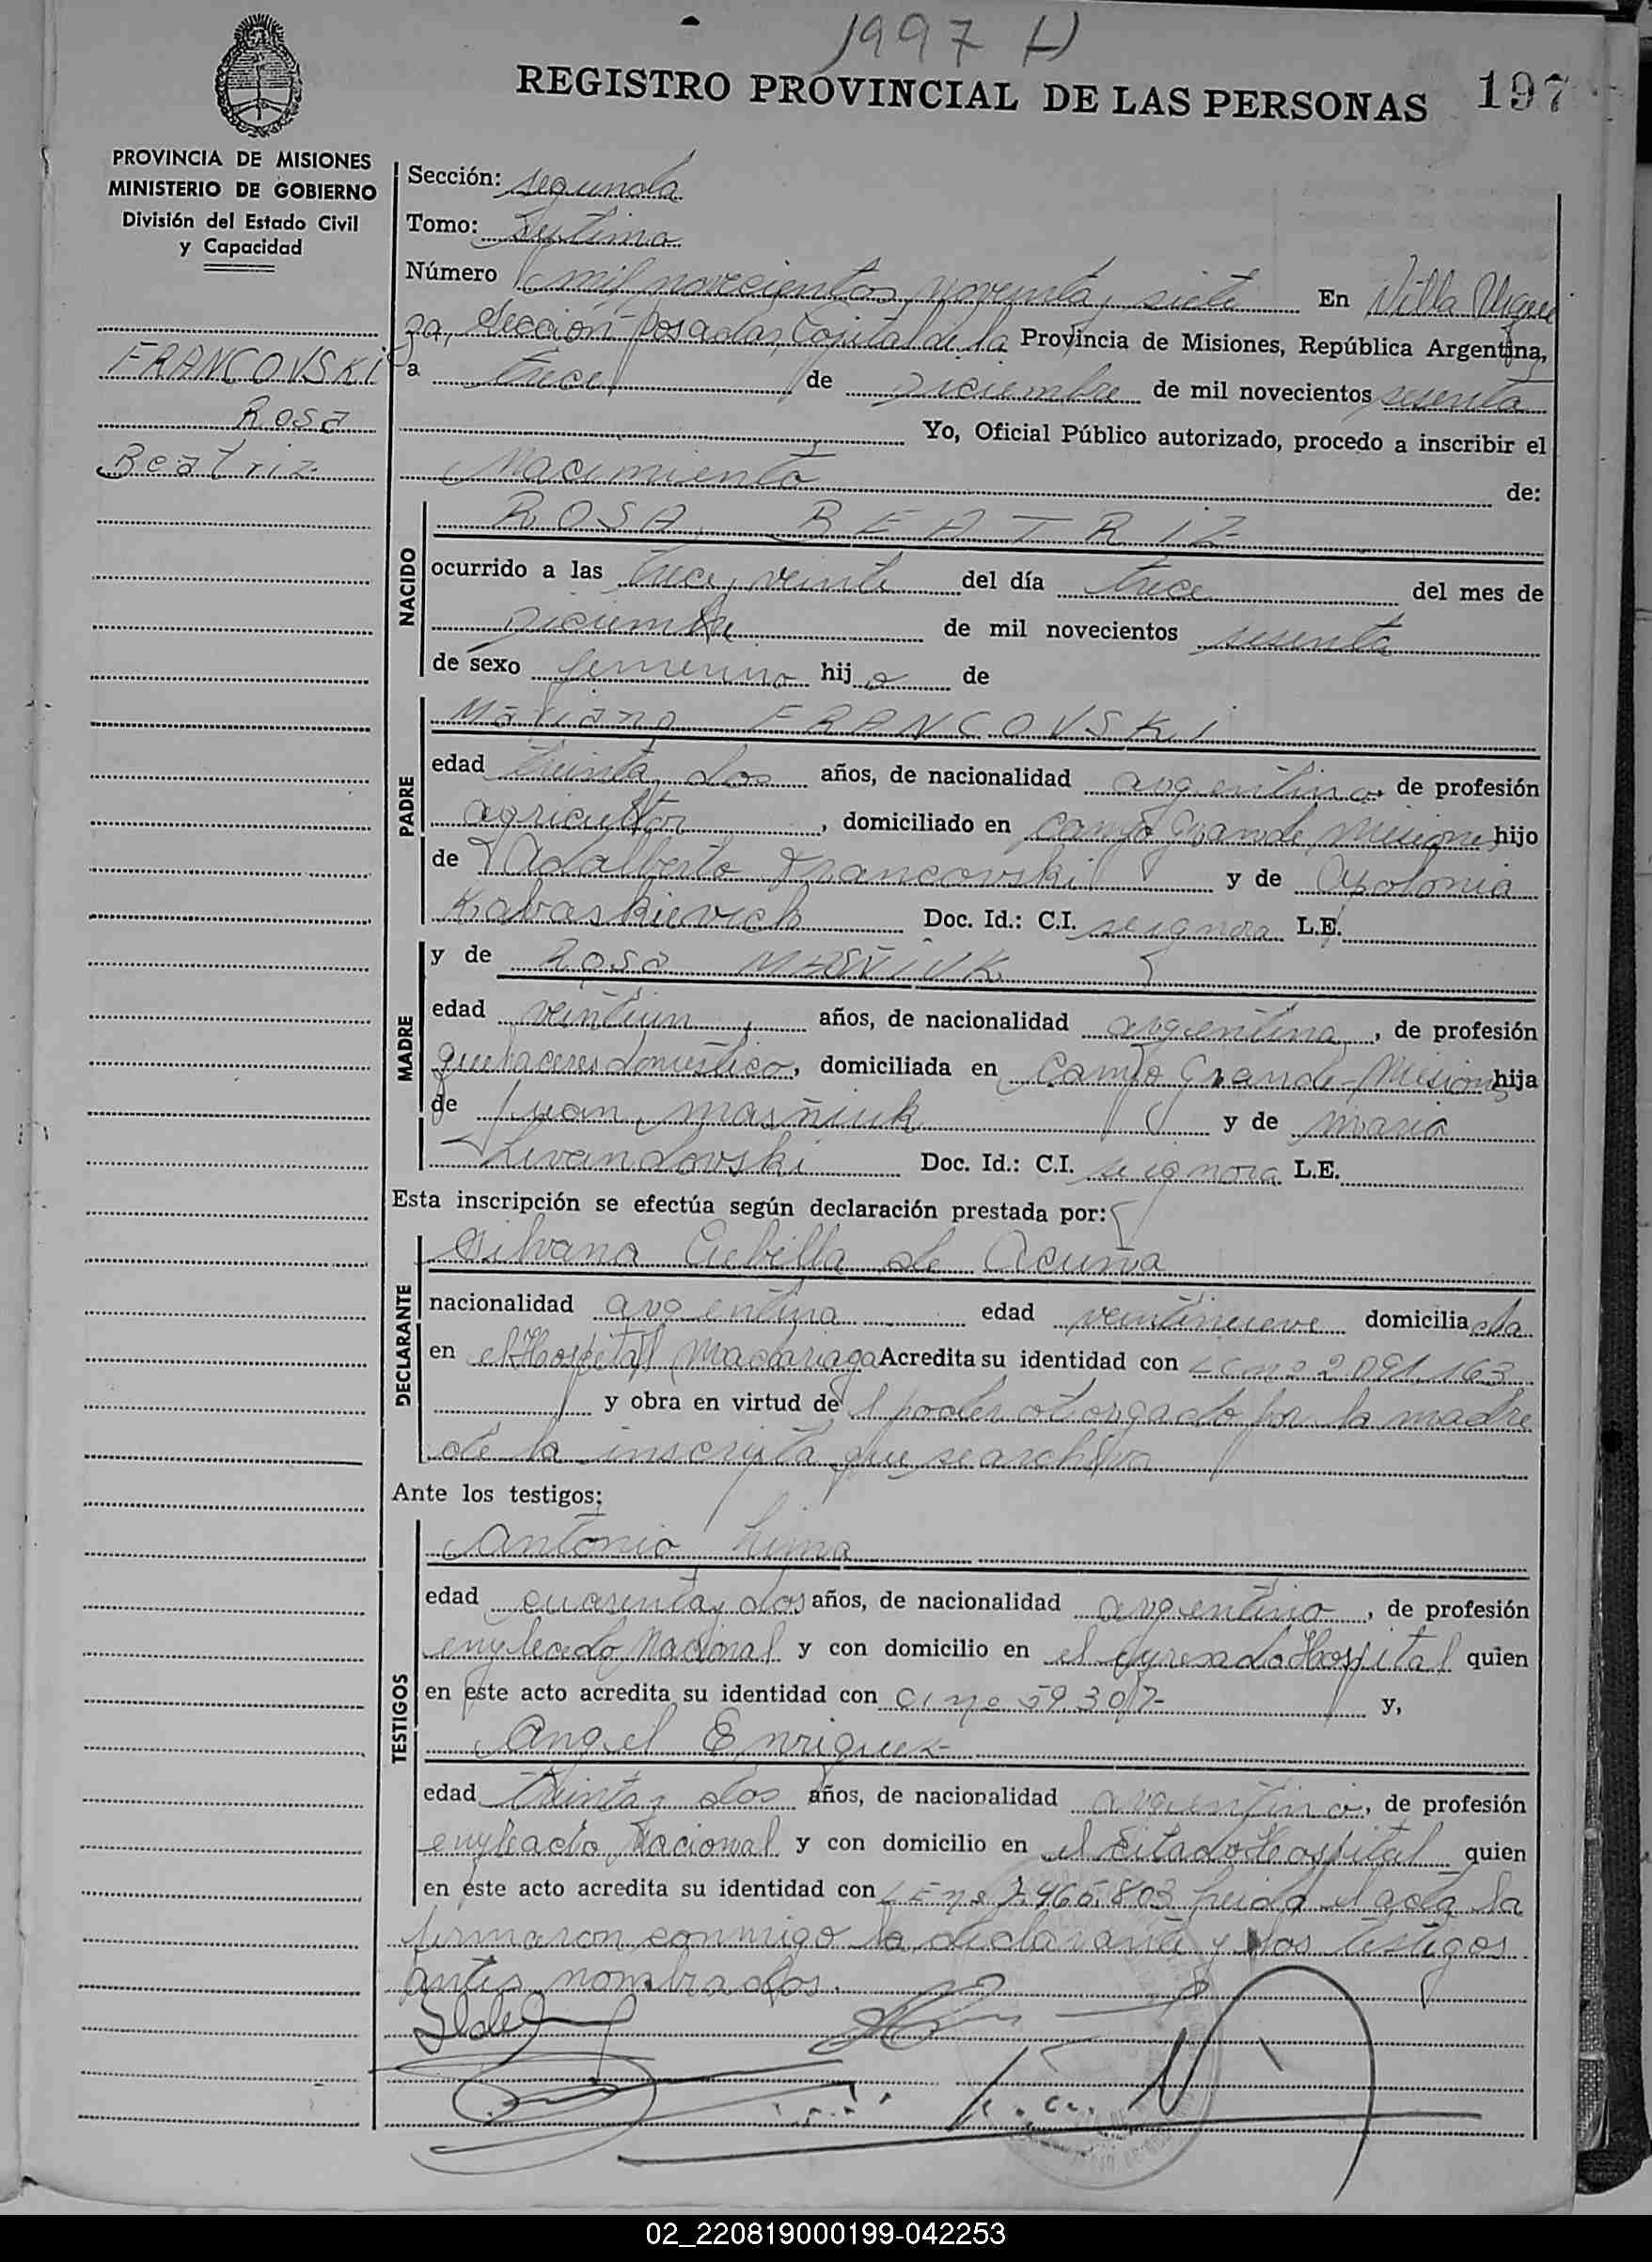 1997
REGISTRO PROVINCIAL DE LAS PERSONAS 197
PROVINCIA DE MISIONES
MINISTERIO DE GOBIERNO
División del Estado Civil
y Capacidad
FRANCOVSKI
Rosa
Beatriz
Sección: segunda
Tomo: Septimo
Número mil novecientos noventa y siete En Villa Urqui
za, Sección Posadas, Capital de la Provincia de Misiones, República Argentina,
a trece de Diciembre de mil novecientos sesenta
Yo, Oficial Público autorizado, procedo a inscribir el
Nacimiento de:
NACIDO
ROSA BEATRIZ
ocurrido a las trece y veinte del día trece del mes de
Diciembre de mil novecientos sesenta
de sexo femenino hija de
PADRE
Mariano FRANCOVSKI
edad treinta y dos años, de nacionalidad argentino de profesión
agricultor, domiciliado en Campo Grande, Misiones hijo
de Adalberto Francovski y de Apolonia
Kabaskievich Doc. Id.: C.I. se ignora L.E.
MADRE
y de Rosa MASÑIUK
edad veintiun años, de nacionalidad argentina, de profesión
quehaceres domestico, domiciliada en Campo Grande - Misiones hija
de Juan Masñiuk y de Maria
Livandovski Doc. Id.: C.I. se ignora L.E.
Esta inscripción se efectúa según declaración prestada por:
DECLARANTE
Silvana Cubilla de Acuña
nacionalidad argentina edad veintinueve domiciliada
en el Hospital Madariaga Acredita su identidad con LC nº 2.091.163
y obra en virtud del poder otorgado por la madre
de la inscripta que se archiva
Ante los testigos:
TESTIGOS
Antonio Lima
edad cuarenta y dos años, de nacionalidad argentino, de profesión
empleado Nacional y con domicilio en el expresado Hospital quien
en este acto acredita su identidad con CI nº 59.307- y,
Angel Enriquez
edad treinta y dos años, de nacionalidad argentino, de profesión
empleado Nacional y con domicilio en el Citado Hospital quien
en este acto acredita su identidad con LE nº 7.465.803 Leida el acta la
firmaron conmigo la declarante y los testigos
antes nombrados.
02_220819000199-042253